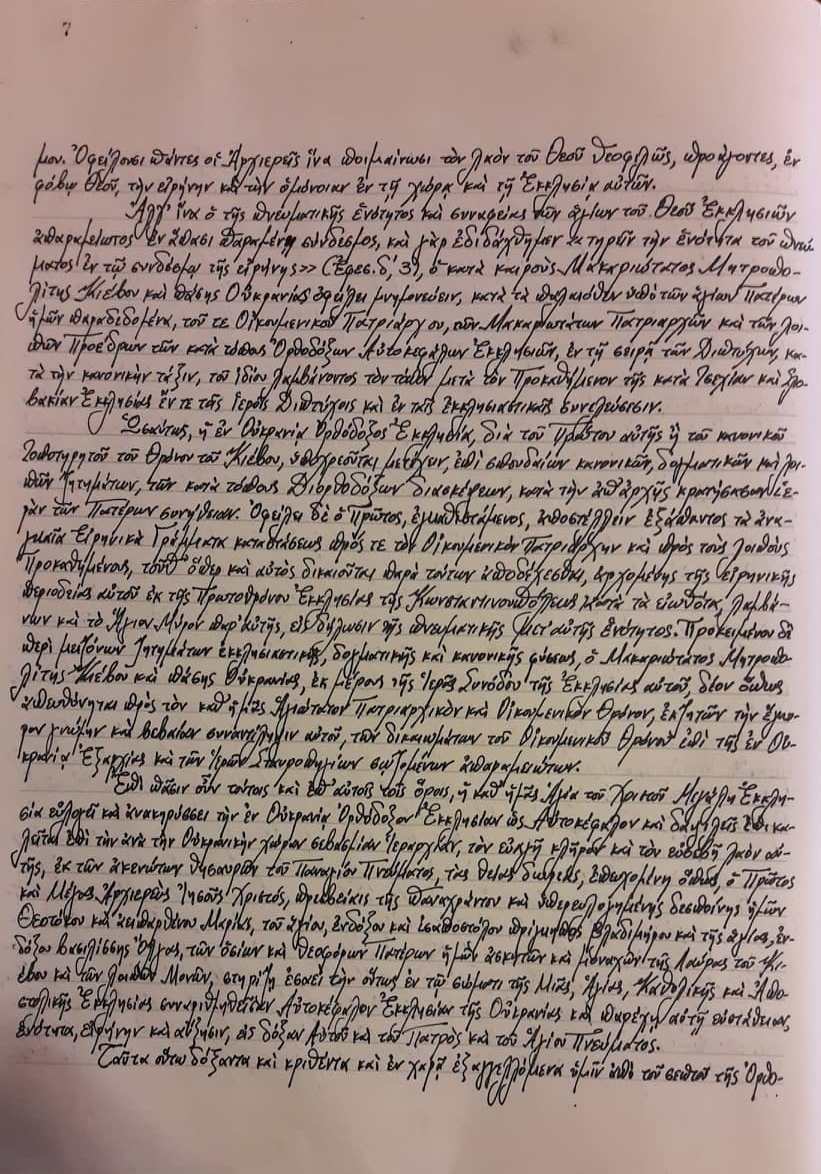 7
μον. Ὀφείλουσι πάντες οἱ Ἀρχιερεῖς ἵνα ποιμαίνωσι τὸν λαὸν τοῦ Θεοῦ θεοφιλῶς, προάγοντες, ἐν
φόβῳ Θεοῦ, τὴν εἰρήνην καὶ τὴν ὁμόνοιαν ἐν τῇ χώρᾳ καὶ τῇ Ἐκκλησίᾳ αὐτῶν.
Ἀλλ' ἵνα ὁ τῆς πνευματικῆς ἑνότητος καὶ συναφείας τῶν ἁγίων τοῦ Θεοῦ Ἐκκλησιῶν
ἀπαραμείωτος ἐν ἅπασι παραμένῃ σύνδεσμος, καὶ γὰρ ἐδιδάχθημεν «τηρεῖν τὴν ἑνότητα τοῦ πνεύ-
ματος ἐν τῷ συνδέσμῳ τῆς εἰρήνης» (Ἐφεσ. δ', 3), ὁ κατὰ καιροὺς Μακαριώτατος Μητροπο-
λίτης Κιέβου καὶ πάσης Οὐκρανίας ὀφείλει μνημονεύειν, κατὰ τὰ παλαιόθεν ὑπὸ τῶν ἁγίων Πατέρων
ἡμῶν παραδεδομένα, τοῦ τε Οἰκουμενικοῦ Πατριάρχου, τῶν Μακαριωτάτων Πατριαρχῶν καὶ τῶν λοι-
πῶν Προέδρων τῶν κατὰ τόπους Ὀρθοδόξων Αὐτοκεφάλων Ἐκκλησιῶν, ἐν τῇ σειρᾷ τῶν Διπτύχων, κα-
τὰ τὴν κανονικὴν τάξιν, τοῦ ἰδίου λαμβάνοντος τὸν τόπον μετὰ τὸν Προκαθήμενον τῆς κατὰ Τσεχίαν καὶ Σλο-
βακίαν Ἐκκλησίας ἔν τε τοῖς Ἱεροῖς Διπτύχοις καὶ ἐν ταῖς ἐκκλησιαστικαῖς συνελεύσεσιν.
Ὡσαύτως, ἡ ἐν Οὐκρανίᾳ Ὀρθόδοξος Ἐκκλησία, διὰ τοῦ Πρώτου αὐτῆς ἢ τοῦ κανονικοῦ
Τοποτηρητοῦ τοῦ Θρόνου τοῦ Κιέβου, ὑποχρεοῦται μετέχειν, ἐπὶ σπουδαίων κανονικῶν, δογματικῶν καὶ λοι-
πῶν ζητημάτων, τῶν κατὰ τόπους Διορθοδόξων διασκέψεων, κατὰ τὴν ἀπ' ἀρχῆς κρατήσασαν ἱε-
ρὰν τῶν Πατέρων συνήθειαν. Ὀφείλει δὲ ὁ Πρῶτος, ἐγκαθιστάμενος, ἀποστέλλειν ἐξάπαντος τὰ ἀνα-
γκαῖα Εἰρηνικὰ Γράμματα καταστάσεως πρός τε τὸν Οἰκουμενικὸν Πατριάρχην καὶ πρὸς τοὺς λοιποὺς
Προκαθημένους, τοῦθ' ὅπερ καὶ αὐτὸς δικαιοῦται παρὰ τούτων ἀποδέχεσθαι, ἀρχομένης τῆς εἰρηνικῆς
περιοδείας αὐτοῦ ἐκ τῆς Πρωτοθρόνου Ἐκκλησίας τῆς Κωνσταντινουπόλεως κατὰ τὰ εἰωθότα, λαμβά-
νων καὶ τὸ Ἅγιον Μύρον παρ' αὐτῆς, εἰς δήλωσιν τῆς πνευματικῆς μετ' αὐτῆς ἑνότητος. Προκειμένου δὲ
περὶ μειζόνων ζητημάτων ἐκκλησιαστικῆς, δογματικῆς καὶ κανονικῆς φύσεως, ὁ Μακαριώτατος Μητροπο-
λίτης Κιέβου καὶ πάσης Οὐκρανίας, ἐκ μέρους τῆς Ἱερᾶς Συνόδου τῆς Ἐκκλησίας αὐτοῦ, δέον ὅπως
ἀπευθύνηται πρὸς τὸν καθ' ἡμᾶς Ἁγιώτατον Πατριαρχικὸν καὶ Οἰκουμενικὸν Θρόνον, ἐκζητῶν τὴν ἔγκυ-
ρον γνώμην καὶ βεβαίαν συναντίληψιν αὐτοῦ, τῶν δικαιωμάτων τοῦ Οἰκουμενικοῦ Θρόνου ἐπὶ τῆς ἐν Οὐ-
κρανίᾳ Ἐξαρχίας καὶ τῶν Ἱερῶν Σταυροπηγίων σῳζομένων ἀπαραμειώτων.
Ἐπὶ πᾶσιν οὖν τούτοις καὶ ἐπ' αὐτοῖς τοῖς ὅροις, ἡ καθ' ἡμᾶς Ἁγία τοῦ Χριστοῦ Μεγάλη Ἐκκλη-
σία εὐλογεῖ καὶ ἀνακηρύσσει τὴν ἐν Οὐκρανίᾳ Ὀρθόδοξον Ἐκκλησίαν ὡς Αὐτοκέφαλον καὶ δαψιλεῖς ἐπικα-
λεῖται ἐπὶ τὴν ἀνὰ τὴν Οὐκρανικὴν χώραν σεβασμίαν Ἱεραρχίαν, τὸν εὐαγῆ κλῆρον καὶ τὸν εὐσεβῆ λαὸν αὐ-
τῆς, ἐκ τῶν ἀκενώτων θησαυρῶν τοῦ Παναγίου Πνεύματος, τὰς θείας δωρεάς, ἐπευχομένη ὅπως, ὁ Πρῶτος
καὶ Μέγας Ἀρχιερεὺς Ἰησοῦς Χριστός, πρεσβείαις τῆς παναχράντου καὶ ὑπερευλογημένης δεσποίνης ἡμῶν
Θεοτόκου καὶ ἀειπαρθένου Μαρίας, τοῦ ἁγίου, ἐνδόξου καὶ ἰσαποστόλου πρίγκηπος Βλαδιμήρου καὶ τῆς ἁγίας, ἐν-
δόξου βασιλίσσης Ὄλγας, τῶν ὁσίων καὶ θεοφόρων Πατέρων ἡμῶν ἀσκητῶν καὶ μοναχῶν τῆς Λαύρας τοῦ Κι-
έβου καὶ τῶν λοιπῶν Μονῶν, στηρίζῃ ἐσαεὶ τὴν οὕτως ἐν τῷ σώματι τῆς Μιᾶς, Ἁγίας, Καθολικῆς καὶ Ἀπο-
στολικῆς Ἐκκλησίας συναριθμηθεῖσαν Αὐτοκέφαλον Ἐκκλησίαν τῆς Οὐκρανίας καὶ παρέχῃ αὐτῇ εὐστάθειαν,
ἑνότητα, εἰρήνην καὶ αὔξησιν, εἰς δόξαν Αὐτοῦ καὶ τοῦ Πατρὸς καὶ τοῦ Ἁγίου Πνεύματος.
Ταῦτα οὕτω δόξαντα καὶ κριθέντα καὶ ἐν χαρᾷ ἐξαγγελλόμενα ὑμῖν ἀπὸ τοῦ σεπτοῦ τῆς Ὀρθο-